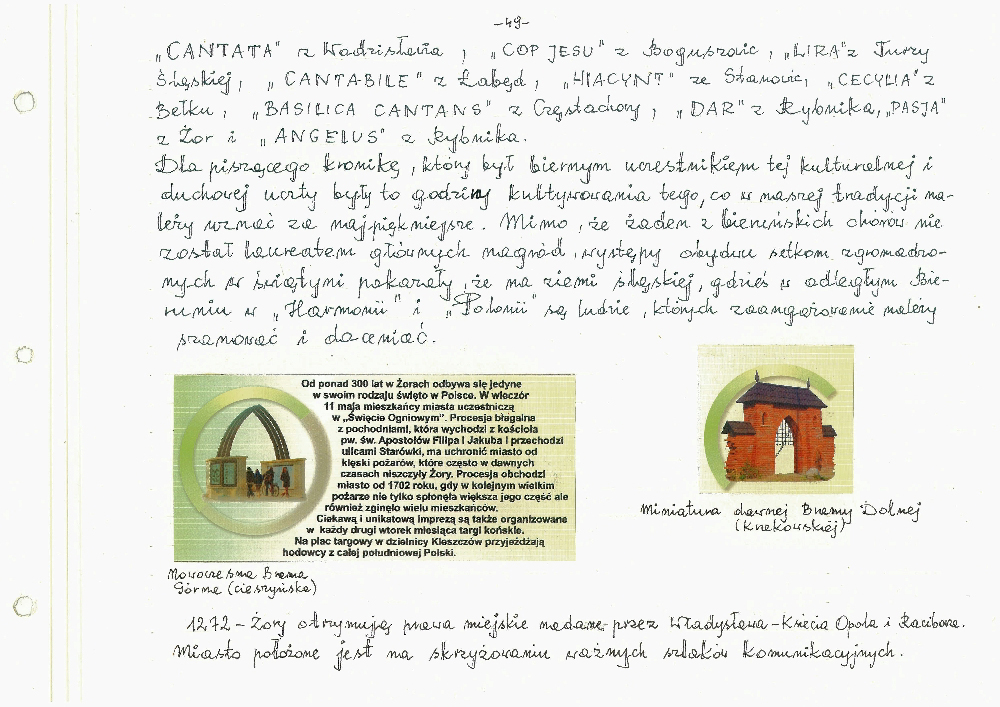 -49-
„CANTATA" z Wodzisławia, „COP JESU" z Boguszowic, „LIRA" z Turzy
Śląskiej, „CANTABILE" z Łabęd, „HIACYNT" ze Stanowic, „CECYLIA" z
Bełku, „BASILICA CANTANS" z Częstochowy, „DAR" z Rybnika, „PASJA"
z Żor i „ANGELUS" z Rybnika.
Dla piszącego kronikę, który był biernym uczestnikiem tej kulturalnej i
duchowej uczty były to godziny kultywowania tego, co w naszej tradycji na-
leży uznać za najpiękniejsze. Mimo, że żaden z bieruńskich chórów nie
został laureatem głównych nagród, występy obydwu setkom zgromadzo-
nych w świątyni pokazały, że na ziemi śląskiej, gdzieś w odległym Bie-
runiu w „Harmonii" i „Polonii" są ludzie, których zaangażowanie należy
szanować i doceniać.
Od ponad 300 lat w Żorach odbywa się jedyne
w swoim rodzaju święto w Polsce. W wieczór
11 maja mieszkańcy miasta uczestniczą
w „Święcie Ogniowym". Procesja błagalna
z pochodniami, która wychodzi z kościoła
pw. św. Apostołów Filipa i Jakuba i przechodzi
ulicami Starówki, ma uchronić miasto od
klęski pożarów, które często w dawnych
czasach niszczyły Żory. Procesja obchodzi
miasto od 1702 roku, gdy w kolejnym wielkim
pożarze nie tylko spłonęła większa jego część ale
również zginęło wielu mieszkańców.
Ciekawą i unikatową imprezą są także organizowane
w każdy drugi wtorek miesiąca targi końskie.
Na plac targowy w dzielnicy Kleszczów przyjeżdżają
hodowcy z całej południowej Polski.
Miniatura dawnej Bramy Dolnej
(Krakowskiej)
Nowoczesna Brama
Górna (cieszyńska)
1272 - Żory otrzymują prawa miejskie nadane przez Władysława - Księcia Opola i Raciborza.
Miasto położone jest na skrzyżowaniu ważnych szlaków komunikacyjnych.